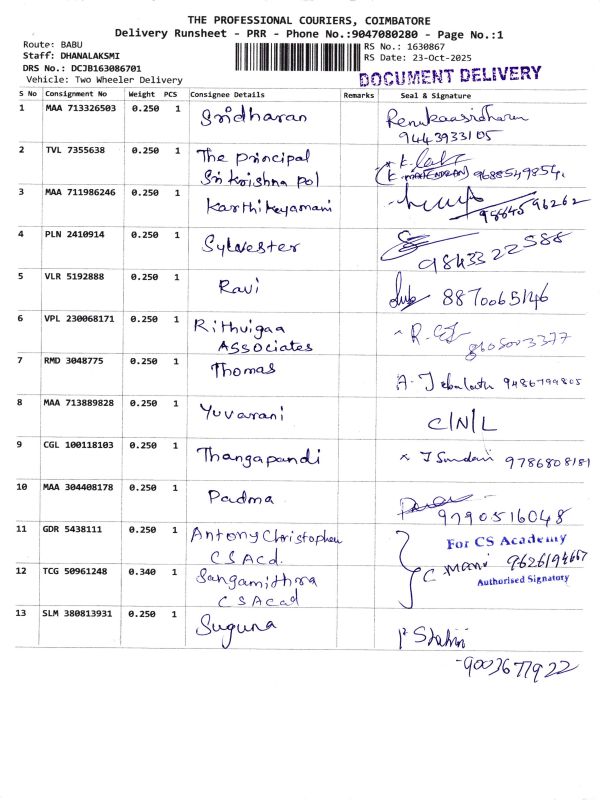 THE PROFESSIONAL COURIERS, COIMBATORE
Delivery Runsheet - PRR - Phone No.:9047080280 - Page No.:1
Route: BABU
Staff: DHANALAKSMI
DRS No.: DCJB163086701
Vehicle: Two Wheeler Delivery
RS No.: 1630867
RS Date: 23-Oct-2025
DOCUMENT DELIVERY
S No Consignment No Weight PCS Consignee Details Remarks Seal & Signature
1 MAA 713326503 0.250 1 Sridharan Renukaasridharan
9443933105
2 TVL 7355638 0.250 1 The principal
Sri Krishna pol 9688549854.
3 MAA 711986246 0.250 1 Karthikeyamani
9884596262
4 PLN 2410914 0.250 1 Sylvester
9843322588
5 VLR 5192888 0.250 1 Ravi 8870065146
6 VPL 230068171 0.250 1 Rithvigaa
Associates
7 RMD 3048775 0.250 1 Thomas
9486799805
8 MAA 713889828 0.250 1 Yuvarani C/N/L
9 CGL 100118103 0.250 1 Thangapandi 9786808181
10 MAA 304408178 0.250 1 Padma
9790516048
11 GDR 5438111 0.250 1 Antony Christopher
CSAcd.
For CS Academy
C. Mani 9626194667
Authorised Signatory
12 TCG 50961248 0.340 1 Sangamithra
CSAcad
13 SLM 380813931 0.250 1 Suguna
-9003677922